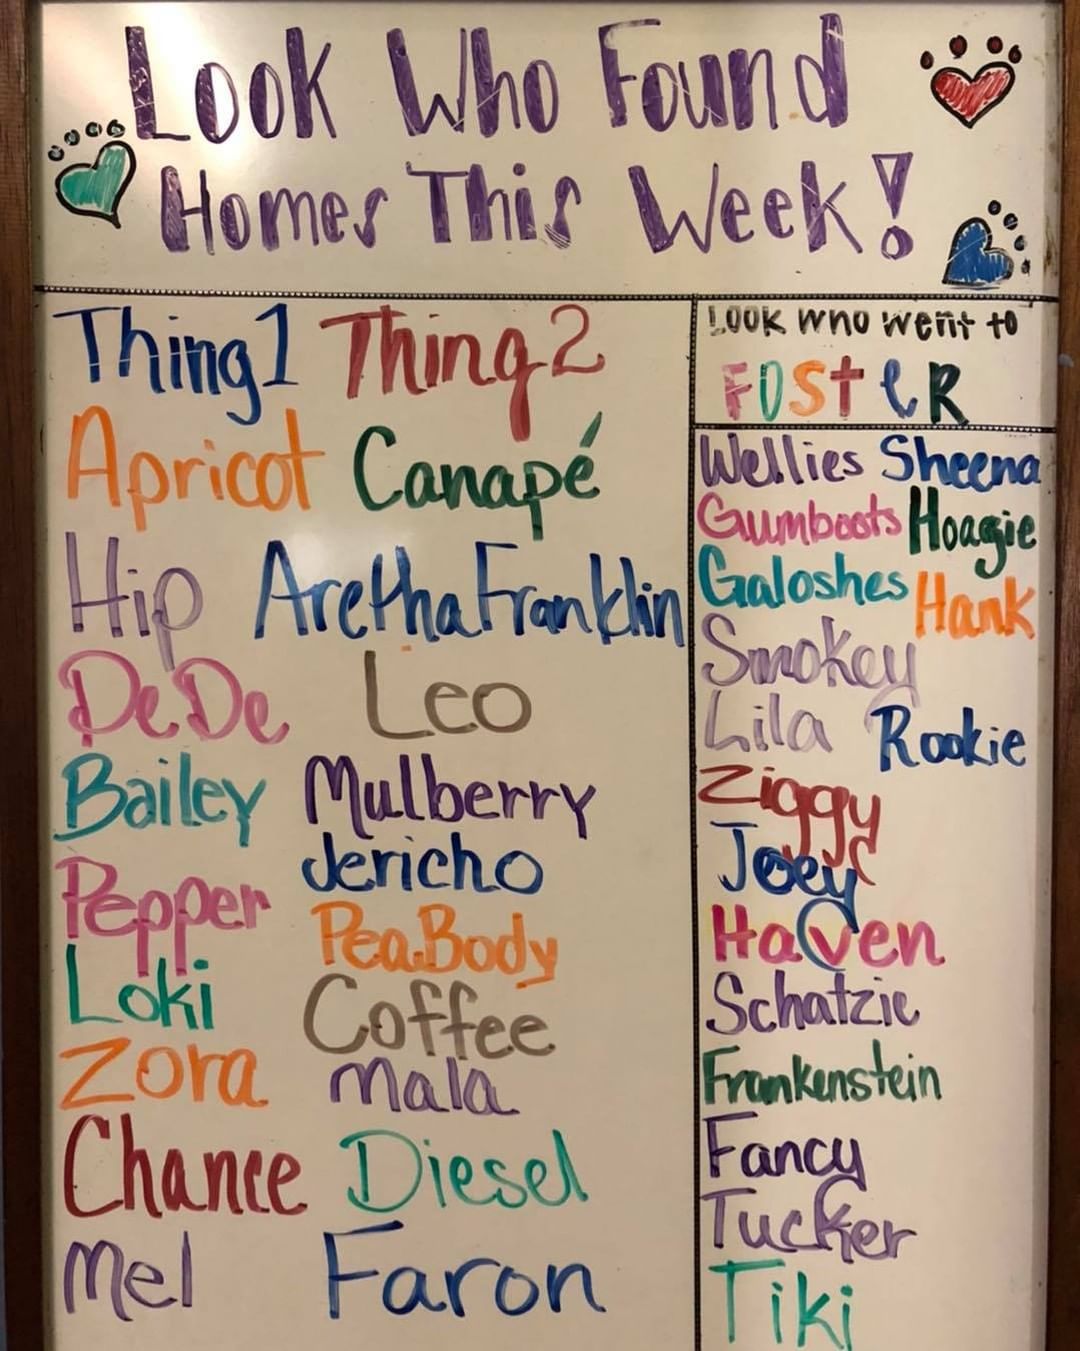 Look Who Found
Homes This Week!
Thing1 Thing2
Apricot Canapé
Hip Aretha Franklin
DeDe Leo
Bailey Mulberry
Jericho
Pepper
PeaBody
Loki
Coffee
Zora Mala
Chance Diesel
Mel Faron
Look who went to
FOSTER
Wellies Sheena
Gumboots Hoagie
Galoshes Hank
Smokey
Lila Rookie
Ziggy
Joey
Haven
Schatzie
Frankenstein
Fancy
Tucker
Tiki